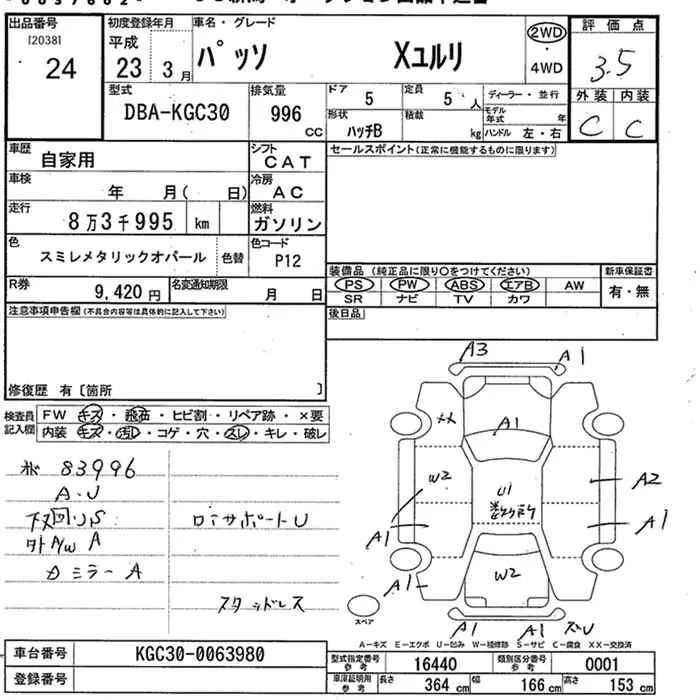 出品番号
120381
24
初度登録年月
平成
23 3月
車名・グレード
パッソ Xユルリ
2WD
・
4WD
評価点
3.5
外装 内装
C C
型式
DBA-KGC30
排気量
996
CC
ドア
5
定員
5 人
形状
ハッチB
積載
kg
ディーラー・並行
モデル年式 年
ハンドル 左・右
車歴
自家用
シフト
CAT
車検
年 月( 日)
冷房
AC
走行
8万3千995 km
燃料
ガソリン
色
スミレメタリックオパール 色替
色コード
P12
R券
9,420円
名変通知期限
月 日
セールスポイント(正常に機能するものに限ります)
装備品(純正品に限り○をつけてください)
PS PW ABS エアB AW
SR ナビ TV カワ
新車保証書
有・無
後日品
注意事項申告欄(不具合内容等は具体的に記入して下さい)
修復歴 有〔箇所 〕
検査員記入欄
FW キズ・飛石・ヒビ割・リペア跡・×要
内装 キズ・汚れ・コゲ・穴・スレ・キレ・破レ
83996
A・U
下回りS
ロアサポートU
外A/W A
ミラーA
スタッドレス
A3
A1
XX
A1
W2
U1
A2
A1
A1
A1
W2
A1
A1
スペア
A=キズ E=エクボ U=凹み W=補修跡 S=サビ C=腐食 XX=交換済
車台番号
KGC30-0063980
登録番号
型式指定番号
参考
16440
類別区分番号
参考
0001
車庫証明用
参考
長さ 364 cm
幅 166 cm
高さ 153 cm